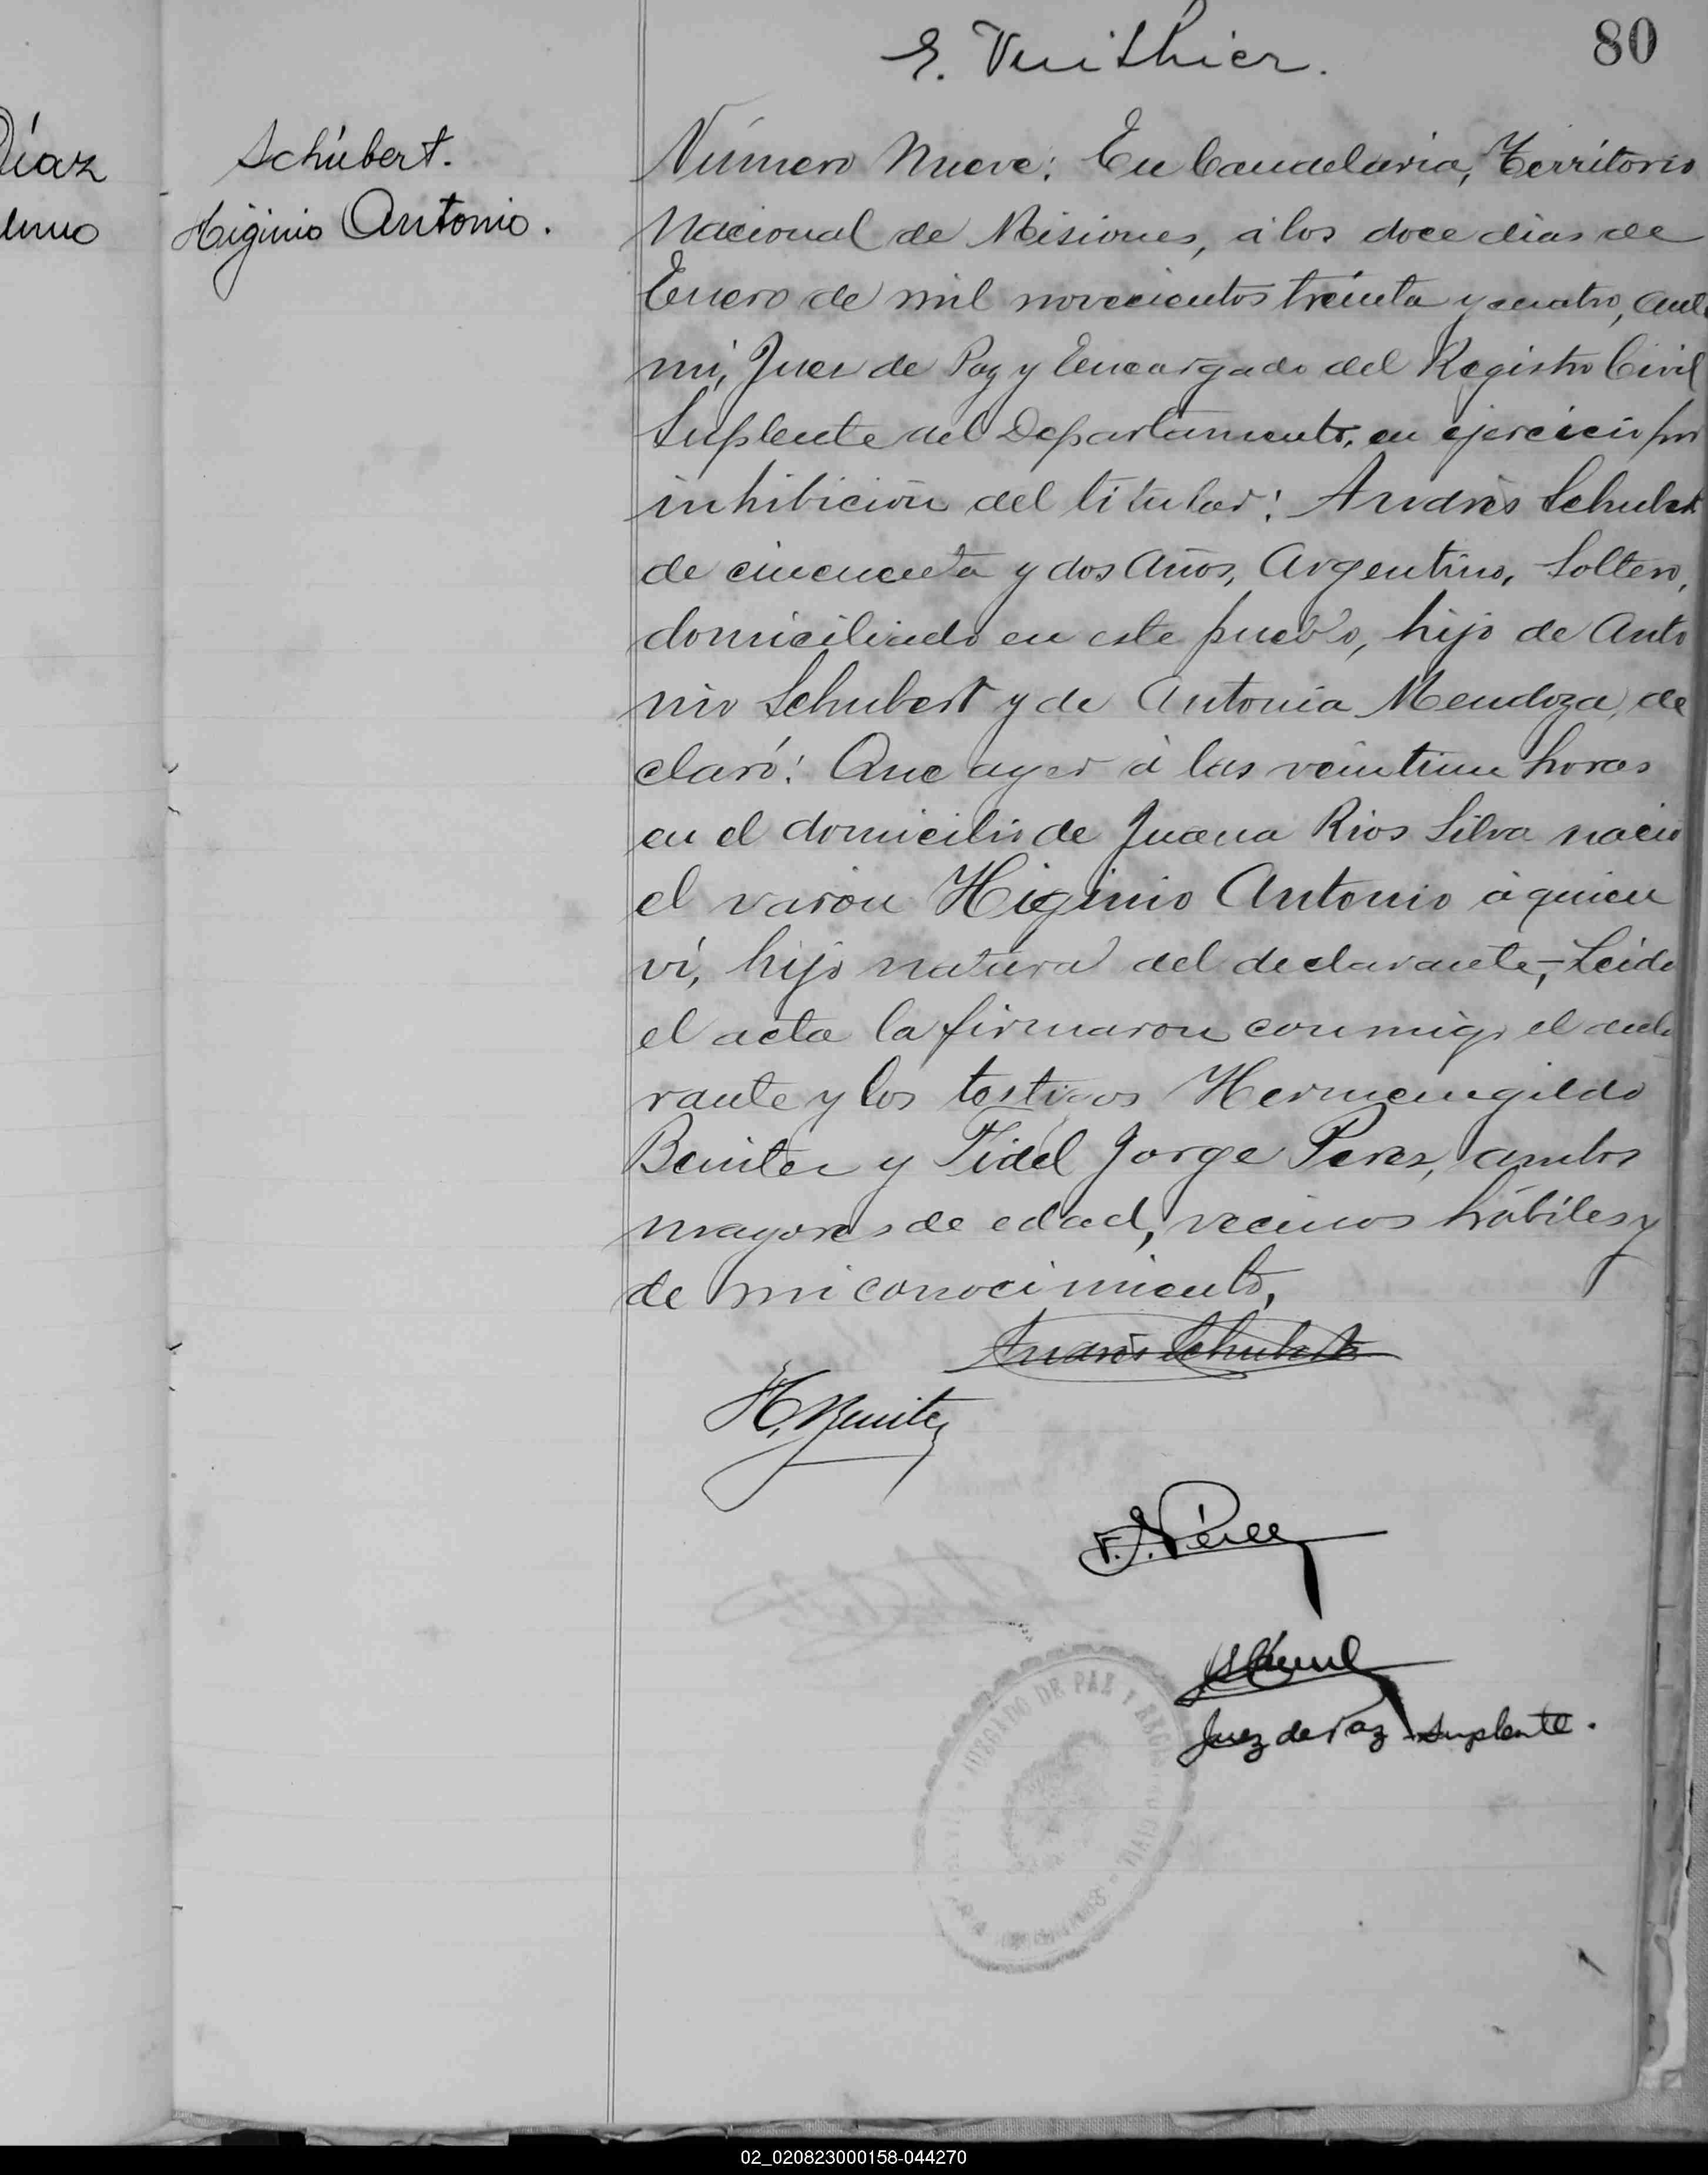 80
E. Vuithier.
Díaz
Schúbert.
Higinio Antonio.
Número Nueve: En Candelaria, Territorio
Nacional de Misiones, á los doce dias de
Enero de mil novecientos treinta y cuatro, ante
mi, Juez de Paz y Encargado del Registro Civil
Suplente del Departamento, en ejercicio por
inhibición del titular: Andrés Schubert
de cincuenta y dos años, Argentino, Soltero,
domiciliado en este pueblo, hijo de Anto
nio Schubert y de Antonia Mendoza, de
claró: Que ayer á las veintiun horas
en el domicilio de Juana Rios Silva nació
el varón Higinio Antonio á quien
ví, hijo natural del declarante,- Leida
el acta la firmaron conmigo el decla
rante y los testigos Hermenegildo
Benitez y Fidel Jorge Perez, ambos
mayores de edad, vecinos hábiles y
de mi conocimiento,
Andrés Schubert
H. Benitez
F. J. Pérez
Juez de Paz Suplente.
JUZGADO DE PAZ Y REGISTRO CIVIL
02_020823000158-044270